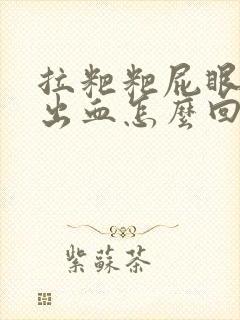 拉粑粑屁眼
出血怎麼回
紫蘇茶